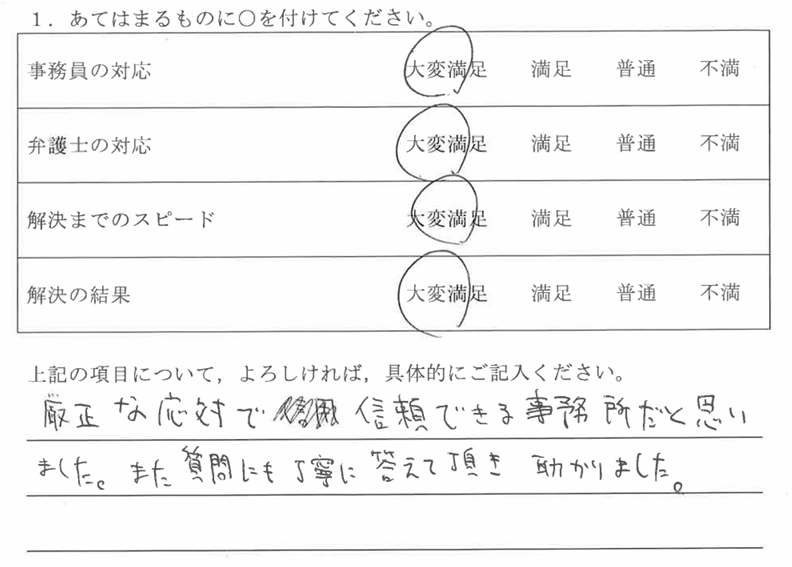 1．あてはまるものに○を付けてください。
事務員の対応 大変満足 満足 普通 不満
弁護士の対応 大変満足 満足 普通 不満
解決までのスピード 大変満足 満足 普通 不満
解決の結果 大変満足 満足 普通 不満
上記の項目について，よろしければ，具体的にご記入ください。
厳正な応対で 信頼できる事務所だと思い
ました。また質問にも丁寧に答えて頂き 助かりました。